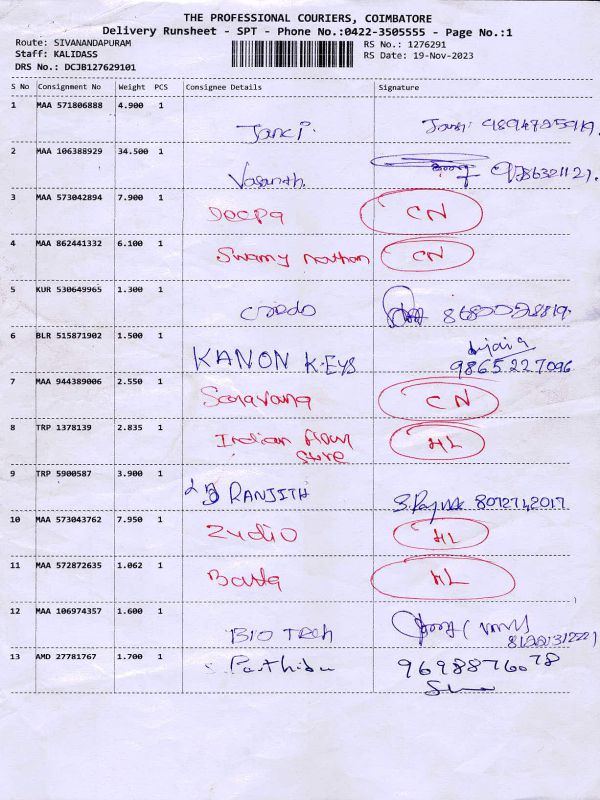 THE PROFESSIONAL COURIERS, COIMBATORE
Delivery Runsheet - SPT - Phone No.:0422-3505555 - Page No.:1
Route: SIVANANDAPURAM
RS No.: 1276291
Staff: KALIDASS
RS Date: 19-Nov-2023
DRS No.: DCJB127629101
S No Consignment No Weight PCS Consignee Details Signature
1 MAA 571806888 4.900 1
Janci
2 MAA 106388929 34.500 1
Vasanth.
3 MAA 573042894 7.900 1
Deepa CN
4 MAA 862441332 6.100 1
Swamy nathan CN
5 KUR 530649965 1.300 1
credo
6 BLR 515871902 1.500 1
KANON KEYS
9865227096
7 MAA 944389006 2.550 1
Saravana CN
8 TRP 1378139 2.835 1
Indian flour HL
9 TRP 5900587 3.900 1
RANJITH 8072742017
10 MAA 573043762 7.950 1
Zudio HL
11 MAA 572872635 1.062 1
Bata HL
12 MAA 106974357 1.600 1
BIO TECH
13 AMD 27781767 1.700 1
9698876078